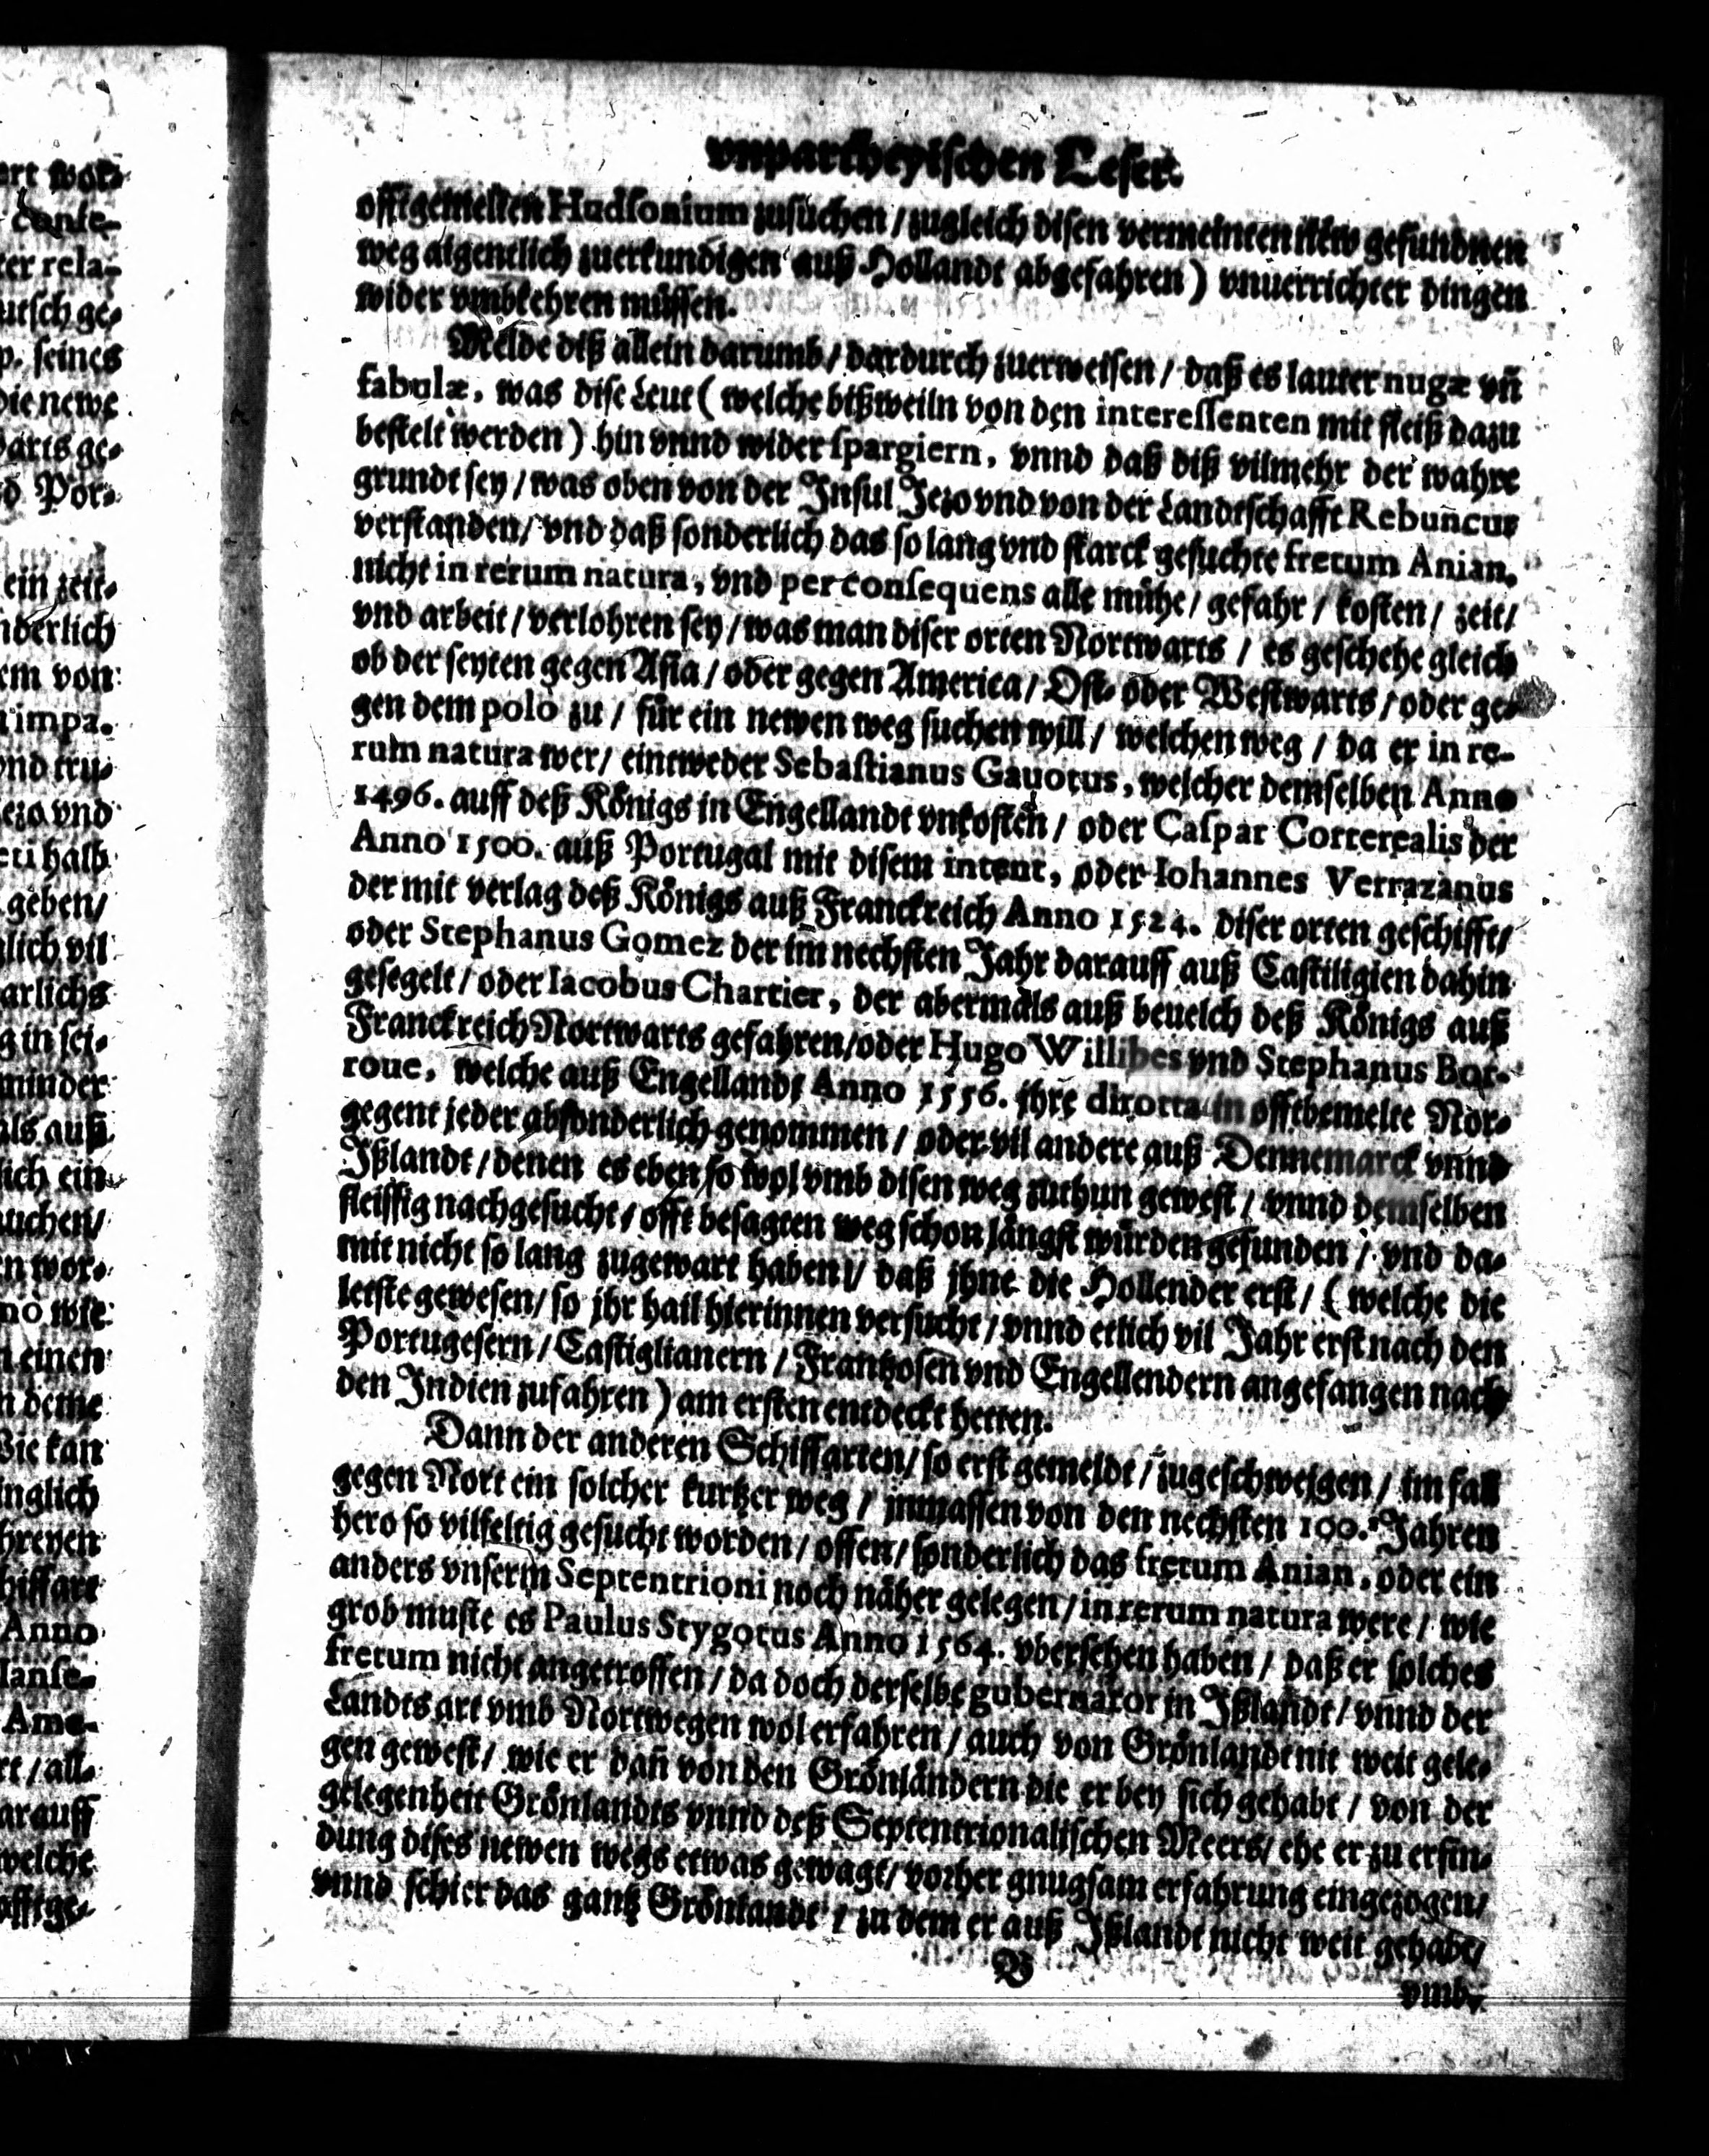 vnpartheyischen Leser.
offtgemelten Hudsonium zusuchen / zugleich disen vermeinten new gefundnen
weg aigentlich zuerkundigen auß Hollandt abgefahren) vnuerrichter dingen
wider vmbkehren müssen.
Melde diß allein darumb / dardurch zuerweisen / daß es lauter nugæ vñ
fabulæ, was dise Leut ( welche bißweiln von den interessenten mit fleiß dazu
bestelt werden) hin vnnd wider spargiern, vnnd daß diß vilmehr der wahre
grundt sey / was oben von der Insul Jezo vnd von der Landtschafft Rebuncus
verstanden / vnd daß sonderlich das so lang vnd starck gesuchte fretum Anian,
nicht in rerum natura, vnd per consequens alle mühe / gefahr / kosten / zeit /
vnd arbeit / verlohren sey / was man diser orten Nortwarts / es geschehe gleich
ob der seyten gegen Asia / oder gegen America / Ost- oder Westwarts / oder ge-
gen dem polo zu / für ein newen weg suchen will / welchen weg / da er in re-
rum natura wer / eintweder Sebastianus Gauotus, welcher demselben Anno
1496. auff deß Königs in Engellandt vnkosten / oder Caspar Corterealis der
Anno 1500. auß Portugal mit disem intent, oder Iohannes Verrazanus
der mit verlag deß Königs auß Franckreich Anno 1524. diser orten geschifft /
oder Stephanus Gomez der im nechsten Jahr darauff auß Castiligien dahin
gesegelt / oder Iacobus Chartier, der abermals auß beuelch deß Königs auß
Franckreich Nortwarts gefahren / oder Hugo Willibes vnd Stephanus Bor-
roue, welche auß Engellandt Anno 1556. jhre dirotta in offtbemelte Nor-
gegent jeder absonderlich genommen / oder vil andere auß Dennemarck vnnd
Ißlandt / denen es eben so wol vmb disen weg zuthun gewest / vnnd demselben
fleissig nachgesucht / offt besagten weg schon längst würden gefunden / vnd da-
mit nicht so lang zugewart haben / daß jhne die Hollender erst / ( welche die
letste gewesen / so jhr hail hierinnen versucht / vnnd etlich vil Jahr erst nach den
Portugesern / Castiglianern / Frantzosen vnd Engellendern angefangen nach
den Indien zufahren ) am ersten entdeckt hetten.
Dann der anderen Schiffarten / so erst gemeldt / zugeschweigen / im fall
gegen Nort ein solcher kurtzer weg / jnmassen von den nechsten 100. Jahren
hero so vilfeltig gesucht worden / offen / sonderlich das fretum Anian, oder ein
anders vnserm Septentrioni noch näher gelegen / in rerum natura were / wie
grob muste es Paulus Stygotus Anno 1564. vbersehen haben / daß er solches
fretum nicht angetroffen / da doch derselbe gubernator in Ißlandt / vnnd der
Landts art vmb Nortwegen wol erfahren / auch von Grönlandt nit weit gele-
gen gewest / wie er dañ von den Grönländern die er bey sich gehabt / von der
gelegenheit Grönlandts vnnd deß Septentrionalischen Meers / ehe er zu erfin-
dung dises newen wegs etwas gewagt / vorher gnugsam erfahrung eingezogen /
vnnd schier das gantz Grönlandt / zu dem er auß Ißlandt nicht weit gehabt /
B
vmb-